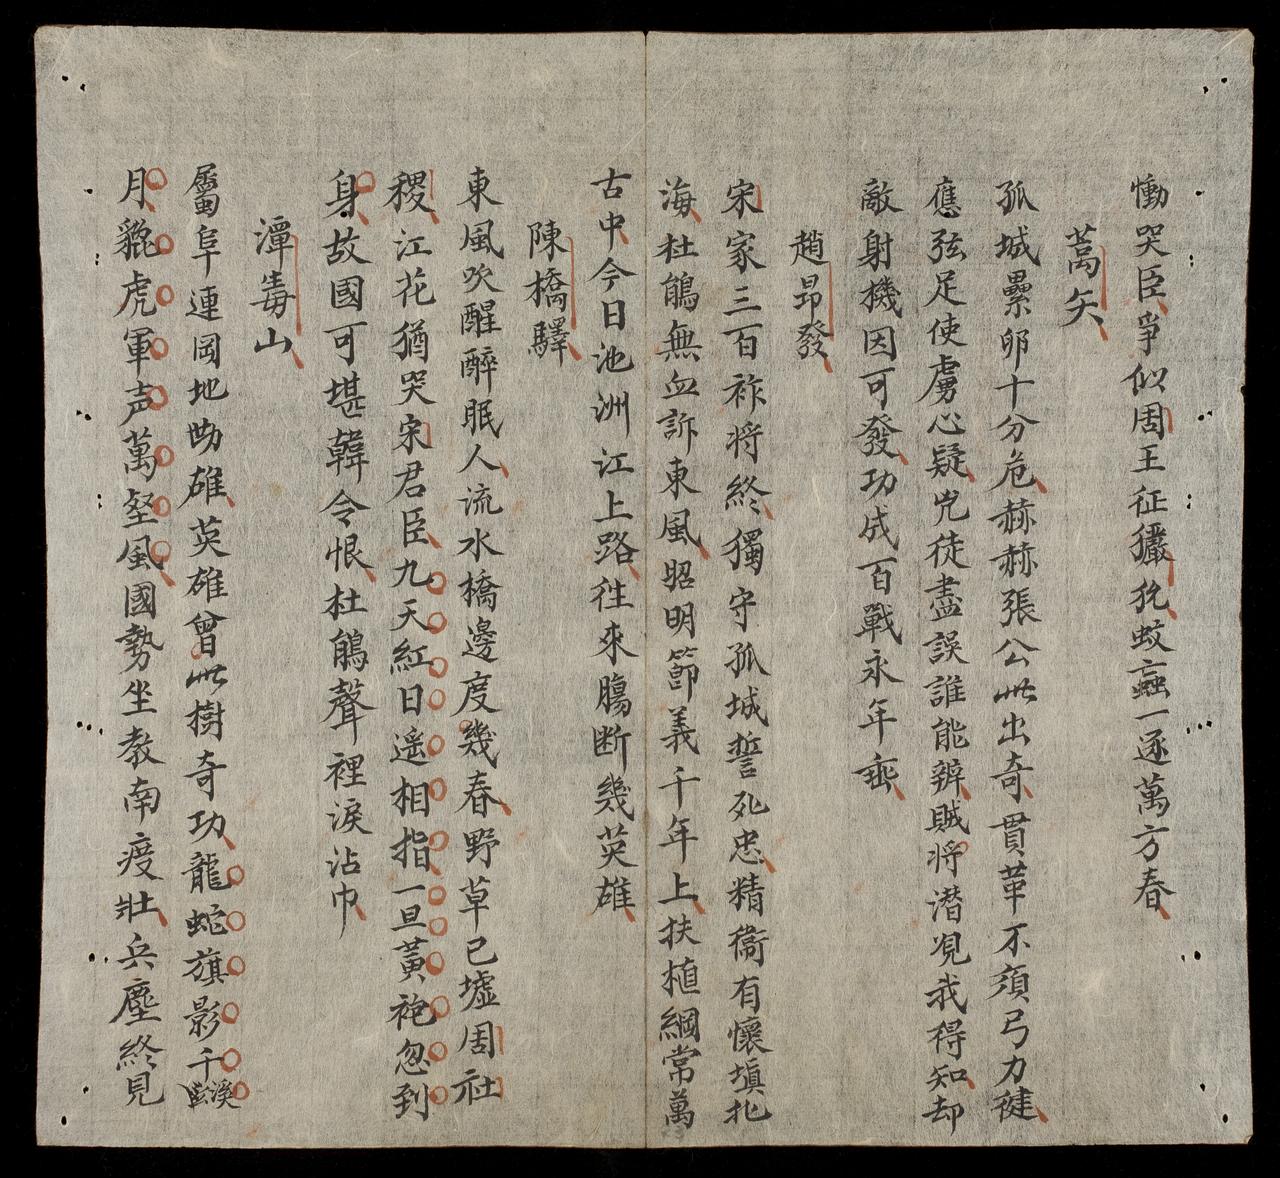 慟哭臣爭似周王征玁狁蚊蝱一逐萬方春
蒿矢
孤城纍卵十分危赫赫張公此出奇貫革不須弓力健
應弦足使虜心疑兇徒盡誤誰能辨賊將潛窺我得知却
敵射機因可發功成百戰永年垂
趙昂發
宋家三百祚将終獨守孤城誓死忠精衞有懷塡北
海杜鵑無血訴東風昭明節義千年上扶植綱常萬
古中今日池洲江上路徃來腸断幾英雄
陳橋驛
東風吹醒醉眠人流水橋邊度幾春野草已墟周社
稷江花猶哭宋君臣九天紅日遥相指一旦黃袍忽到
身故國可堪韓令恨杜鵑聲裡淚沾巾
潭毒山
屬阜連岡地势雄英雄曾此樹奇功龍蛇旗影千溪
月貔虎軍声萬壑風國勢坐教南疫壯兵塵終見